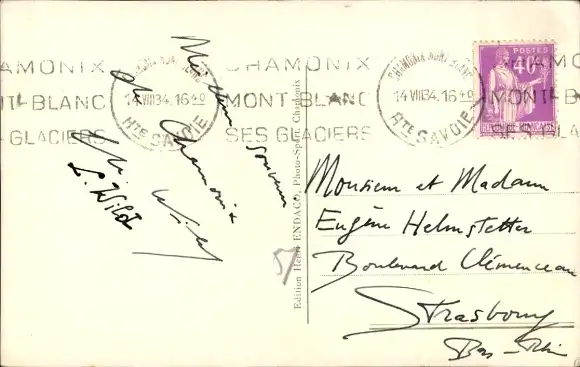 CHAMONIX
MONT-BLANC
SES GLACIERS
CHAMONIX MONT-BLANC
14 VIII 34. 16 40
Hte SAVOIE
CHAMONIX
MONT-BLANC
SES GLACIERS
CHAMONIX MONT-BLANC
14 VIII 34. 16 40
Hte SAVOIE
POSTES
40c
RÉPUBLIQUE FRANÇAISE
Meilleur souvenir
de Chamonix
Wild
L. Wild
Edition Henri ENDACO, Photo-Sport, Chamonix
57
Monsieur et Madame
Eugène Helmstetter
Boulevard Clémenceau
Strasbourg
Bas-Rhin